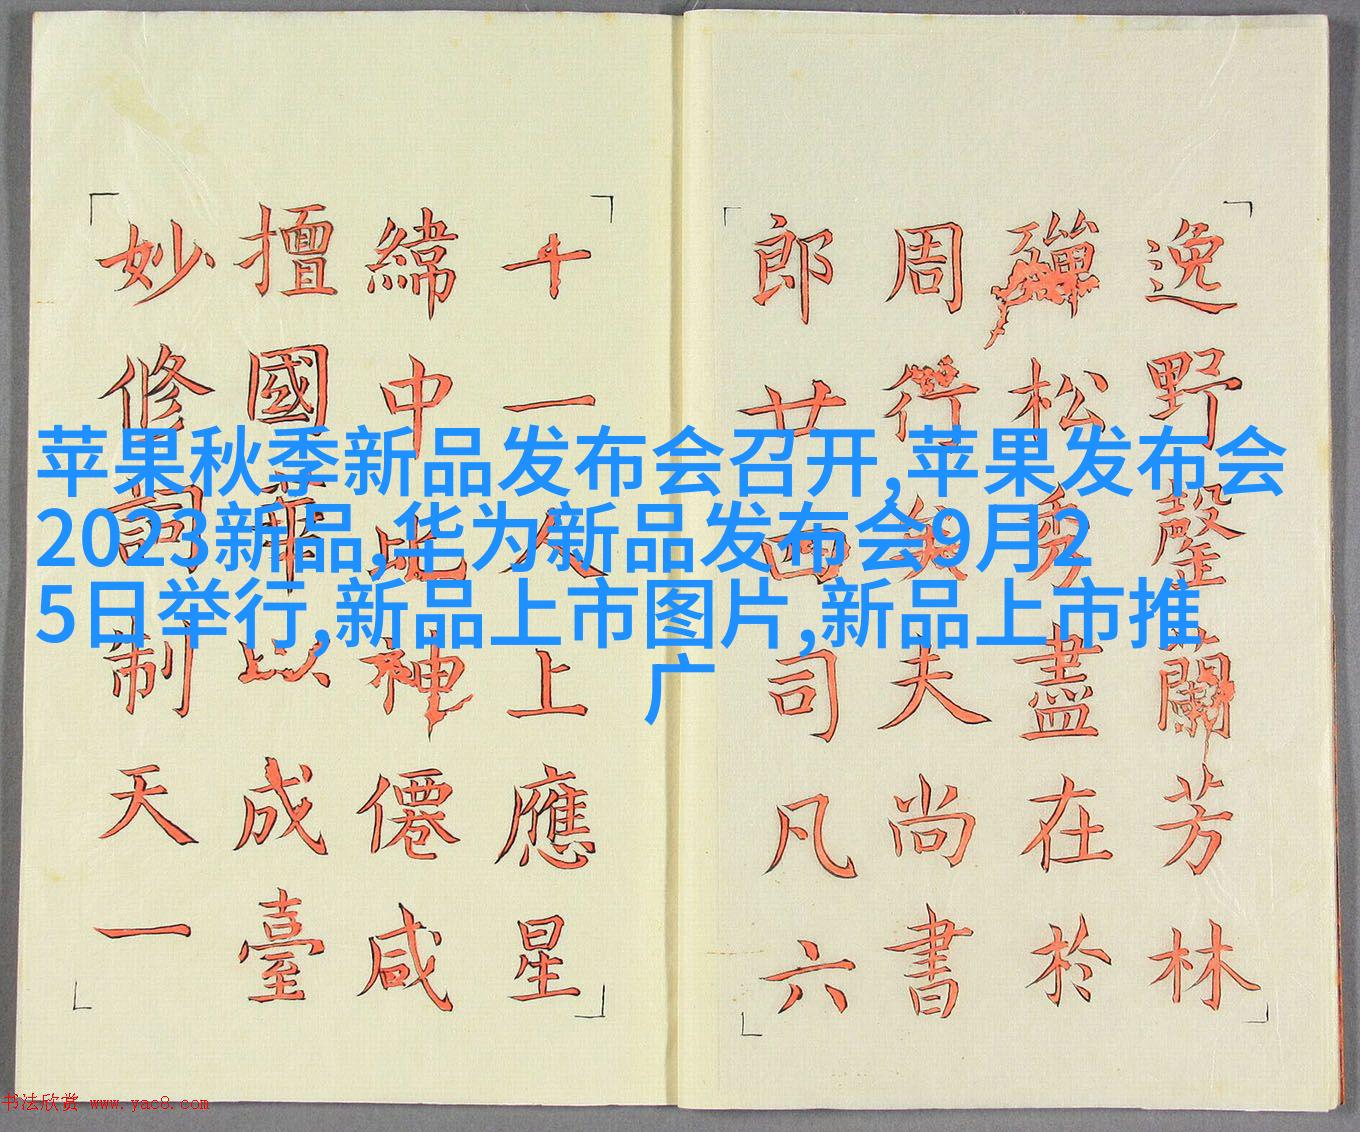 苹果秋季新品发布会召开,苹果发布会
2023新品,华为新品发布会9月2
5日举行,新品上市图片,新品上市推
广
逸野罄蘭芳林
殫松秀盡在於
周行矣夫尚書
郎廿四司凡六
十一人上應星
緯中比神僊咸
擅國華以成臺
妙修詞制天一
书法欣赏 www.yac8.com